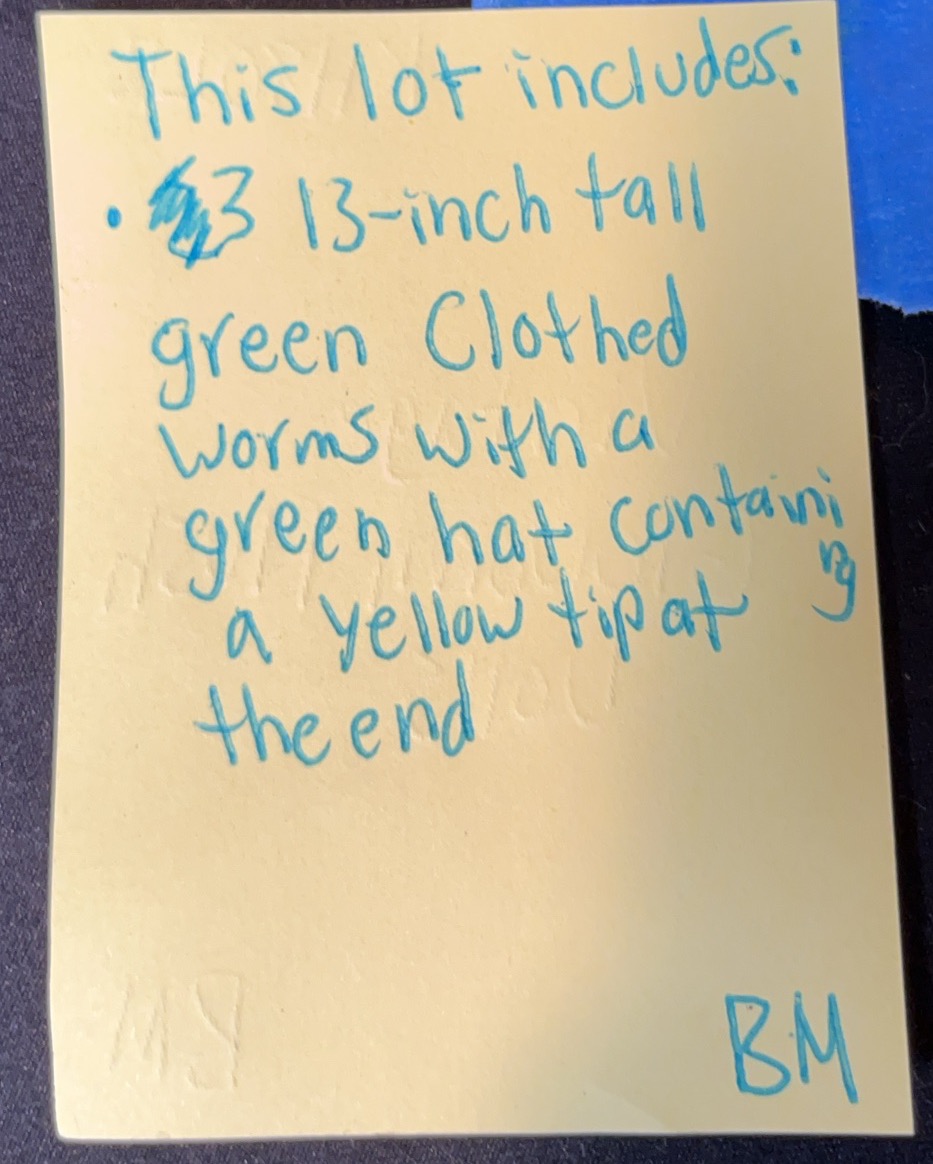 This lot includes:
• 3 13-inch tall
green Clothed
worms with a
green hat containi
ng
a yellow tip at
the end
BM